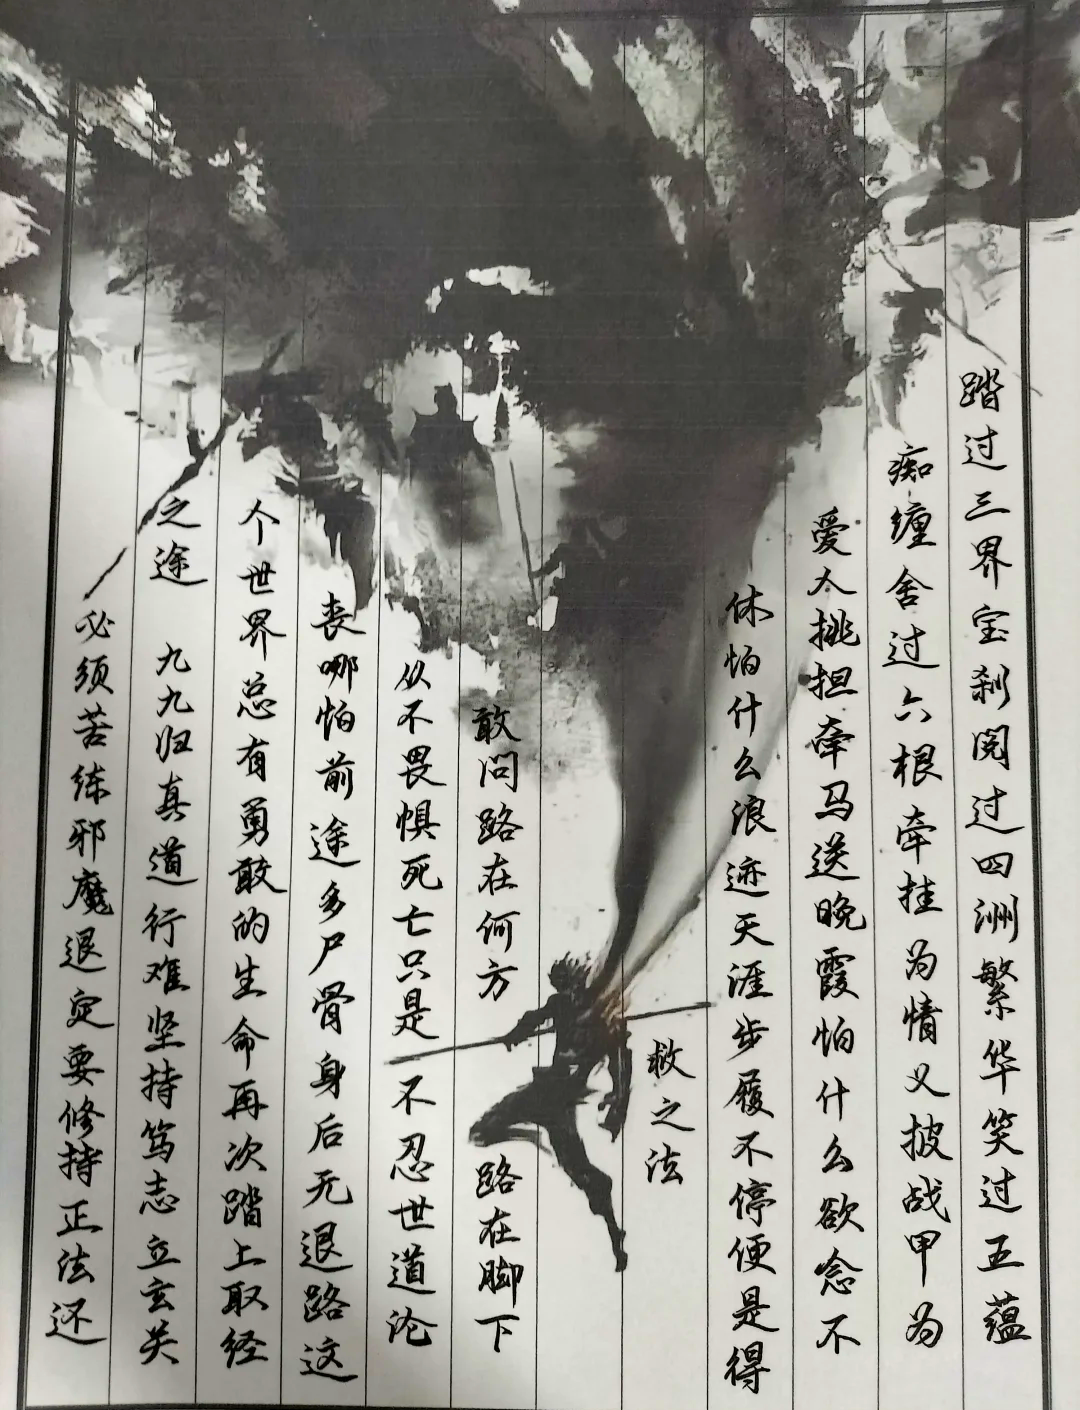 踏过三界宝刹阅过四洲繁华笑过五蕴
痴缠舍过六根牵挂为情义披战甲为
爱人挑担牵马送晚霞怕什么欲念不
休怕什么浪迹天涯步履不停便是得
救之法
敢问路在何方 路在脚下
从不畏惧死亡只是 不忍世道沦
丧哪怕前途多尸骨身后无退路这
个世界总有勇敢的生命再次踏上取经
之途 九九归真道行难坚持笃志立玄关
必须苦练邪魔退定要修持正法还